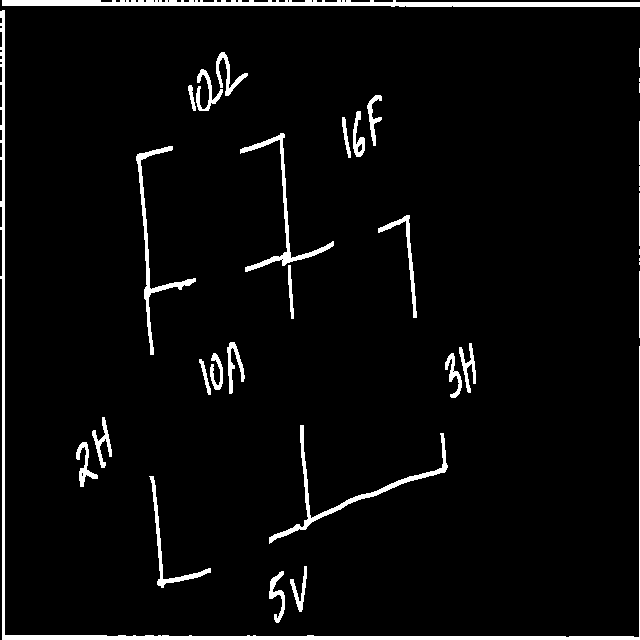 10Ω
16F
10A
3H
2H
5V